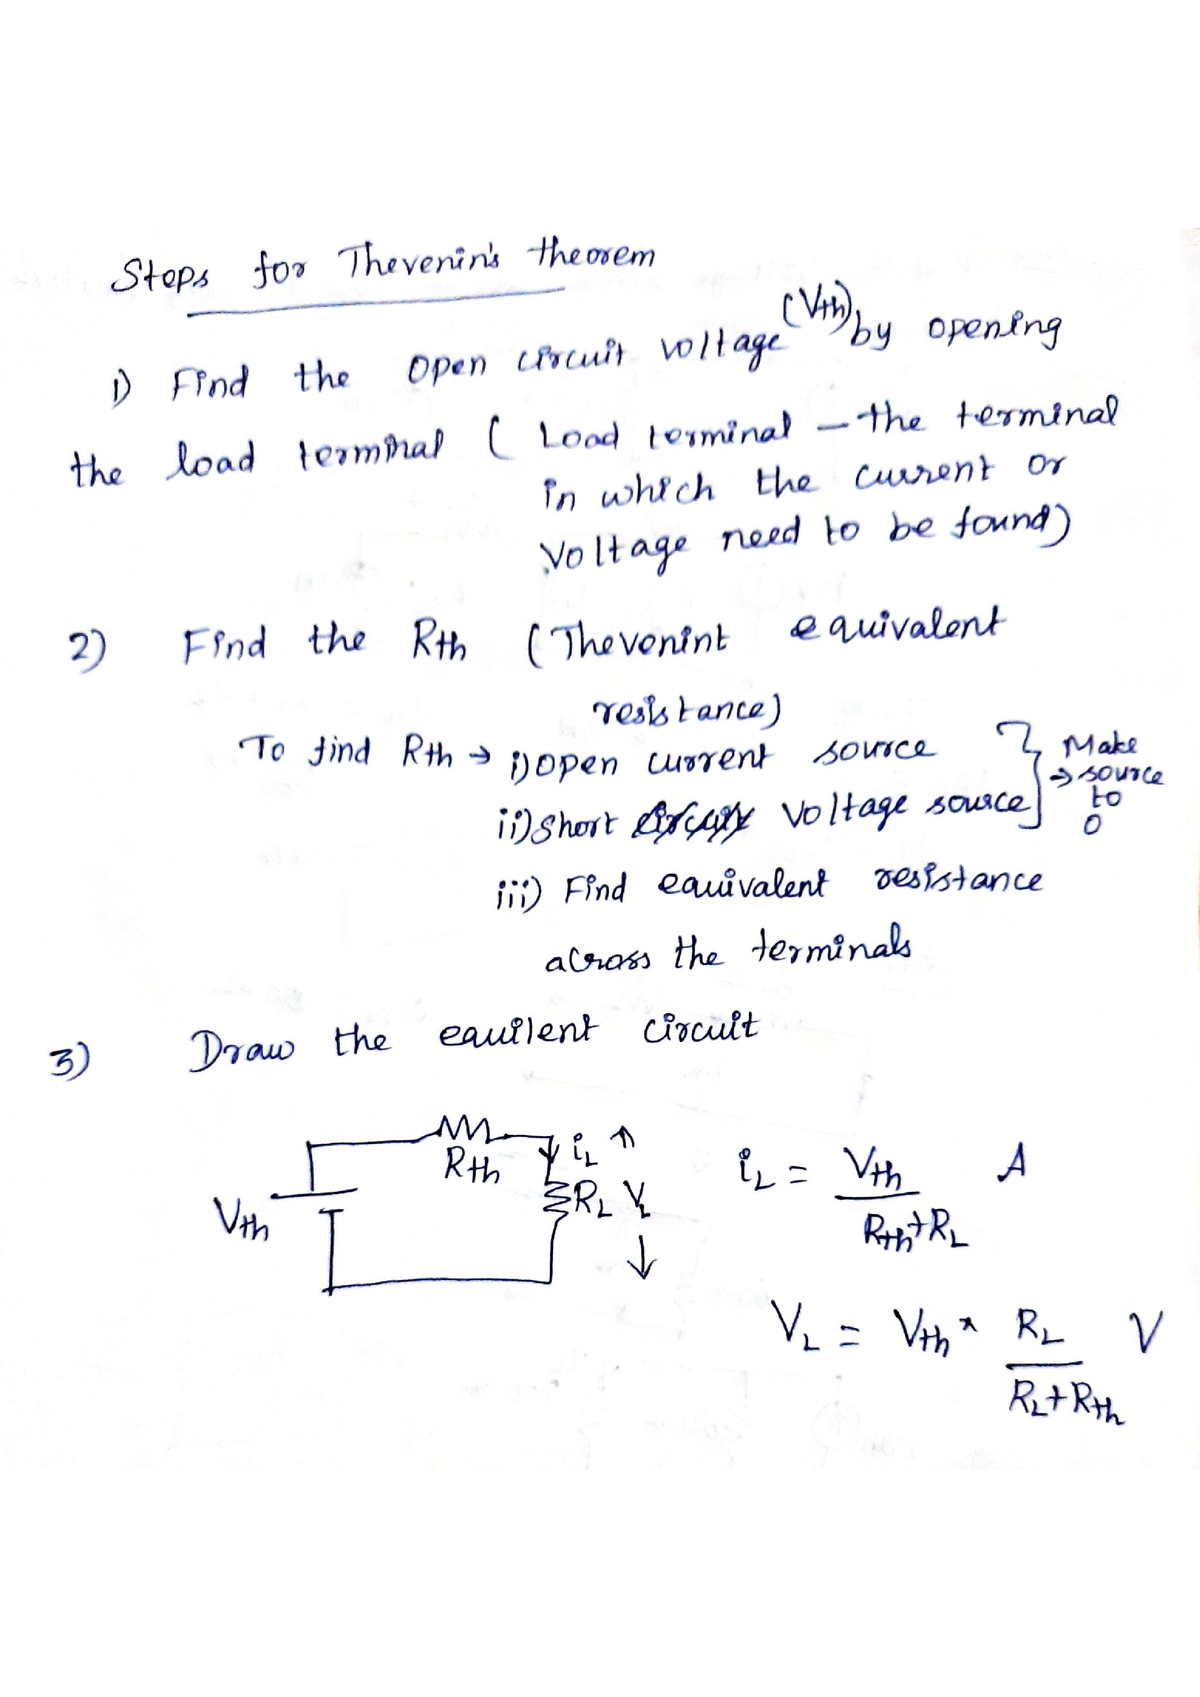 Steps for Thevenin's theorem
1) Find the open circuit voltage (Vth) by opening
the load terminal ( Load terminal - the terminal
in which the current or
voltage need to be found)
2) Find the Rth (Thevenint equivalent
resistance)
To find Rth → i) open current source } Make
ii) short voltage source } → source
to
0
iii) Find equivalent resistance
across the terminals
3) Draw the equilent circuit
Rth
iL
RL VL
Vth
iL = Vth / Rth+RL A
VL = Vth * RL / RL+Rth V